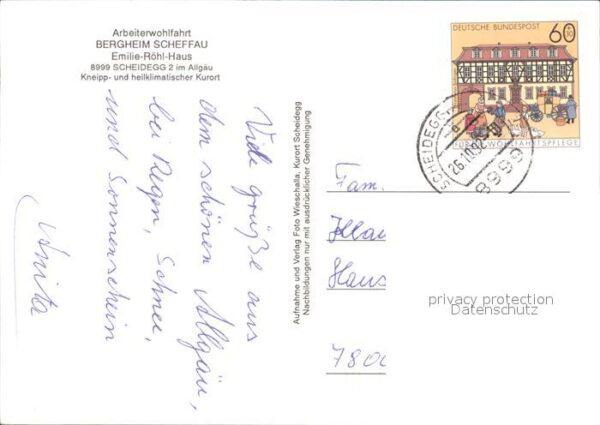 Arbeiterwohlfahrt
BERGHEIM SCHEFFAU
Emilie-Röhl-Haus
8999 SCHEIDEGG 2 im Allgäu
Kneipp- und heilklimatischer Kurort
Viele grüße aus
dem schönen Allgäu,
bei Regen, Schnee,
und Sonnenschein
Anita
Aufnahme und Verlag Foto Wieschalla, Kurort Scheidegg
Nachbildungen nur mit ausdrücklicher Genehmigung
DEUTSCHE BUNDESPOST
60
FÜR DIE WOHLFAHRTSPFLEGE
SCHEIDEGG
8999
Fam.
Klau
Haus
780
privacy protection
Datenschutz